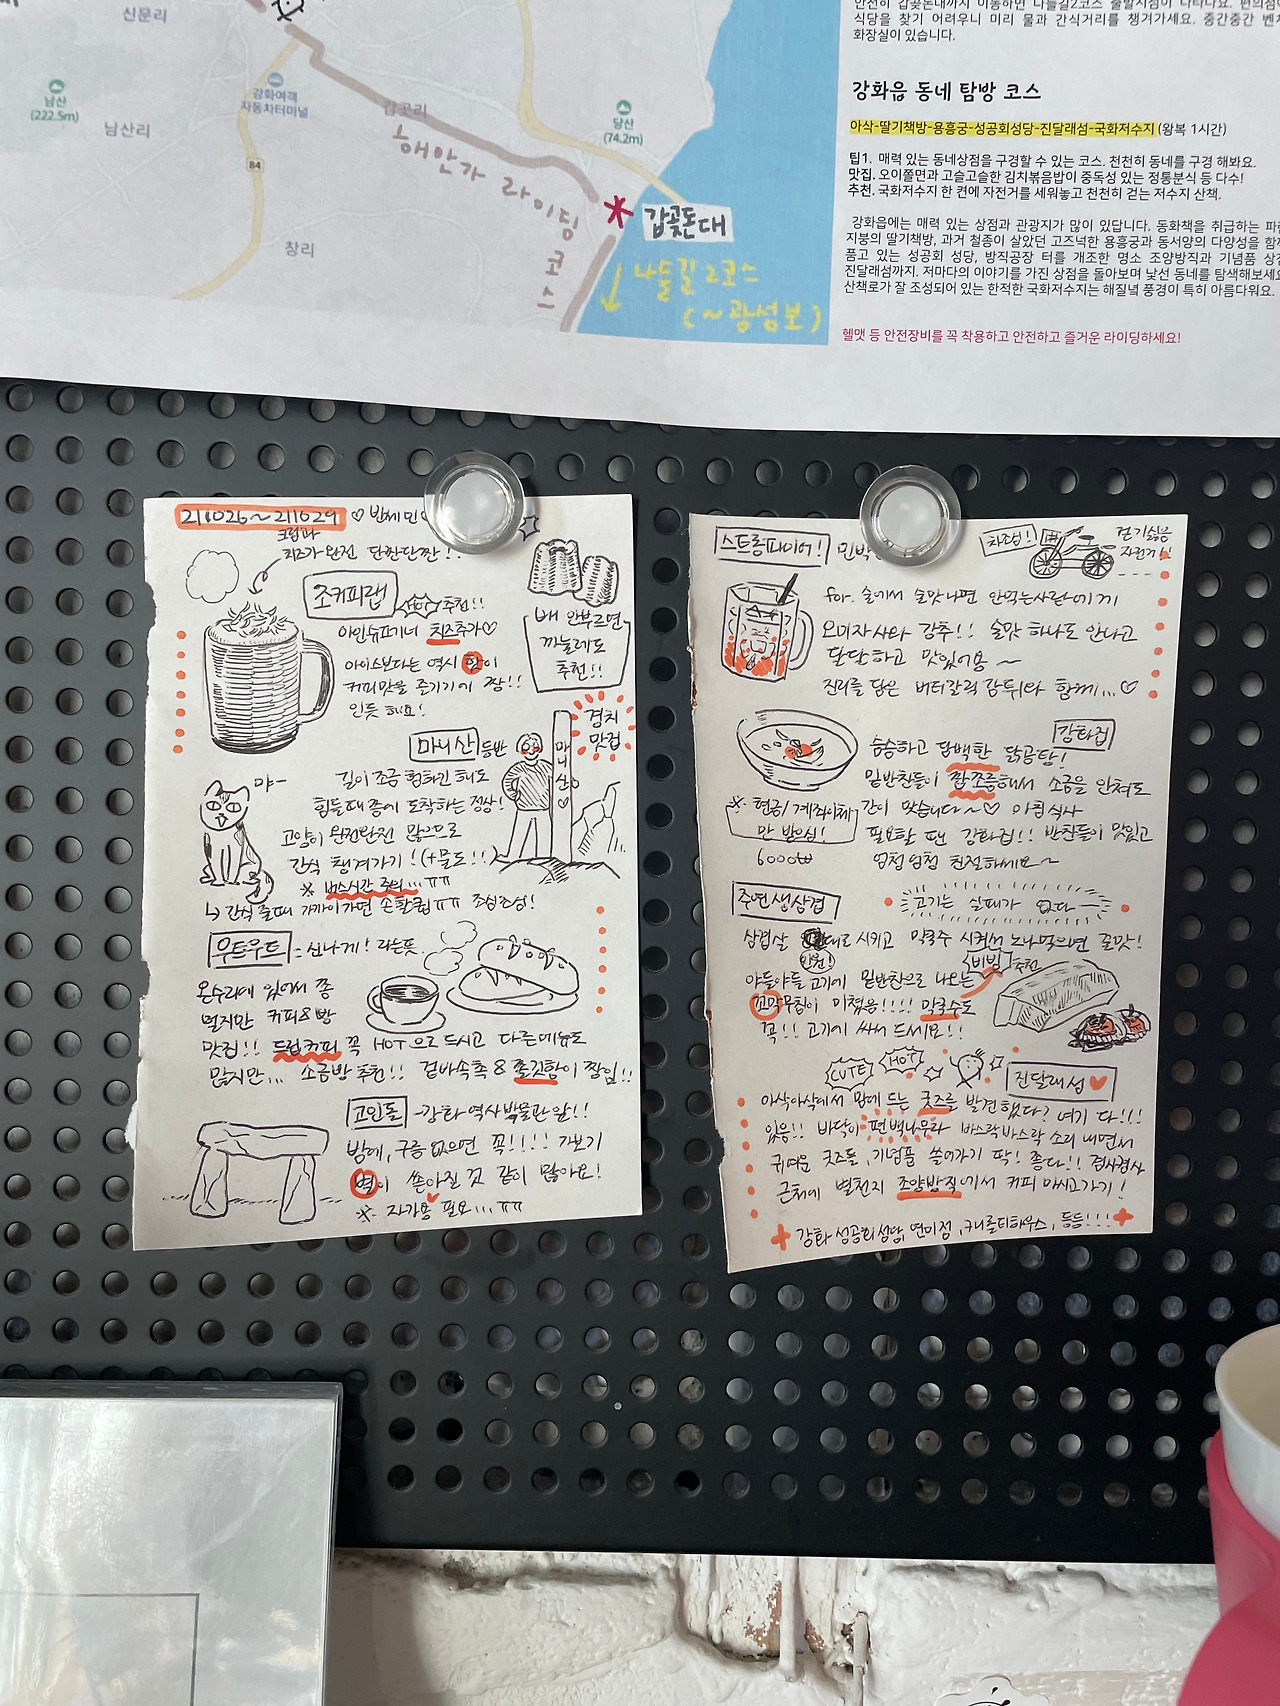 신문리
남산
(222.5m)
남산리
강화여객
자동차터미널
84
갑곶리
당산
(74.2m)
창리
해안가 라이딩 코스
갑곶돈대
나들길 2코스
(~광성보)
안전히 갑곶돈대까지 이동하면 나들길2코스 출발지점이 나타나요. 편의점
식당을 찾기 어려우니 미리 물과 간식거리를 챙겨가세요. 중간중간 벤치
화장실이 있습니다.
강화읍 동네 탐방 코스
아삭-딸기책방-용흥궁-성공회성당-진달래섬-국화저수지 (왕복 1시간)
팁1. 매력 있는 동네상점을 구경할 수 있는 코스. 천천히 동네를 구경 해봐요.
맛집. 오이쫄면과 고슬고슬한 김치볶음밥이 중독성 있는 정통분식 등 다수!
추천. 국화저수지 한 켠에 자전거를 세워놓고 천천히 걷는 저수지 산책.
강화읍에는 매력 있는 상점과 관광지가 많이 있답니다. 동화책을 취급하는 파란
지붕의 딸기책방, 과거 철종이 살았던 고즈넉한 용흥궁과 동서양의 다양성을 함께
품고 있는 성공회 성당, 방직공장 터를 개조한 명소 조양방직과 기념품 상점
진달래섬까지. 저마다의 이야기를 가진 상점을 돌아보며 낯선 동네를 탐색해보세요
산책로가 잘 조성되어 있는 한적한 국화저수지는 해질녘 풍경이 특히 아름다워요.
헬맷 등 안전장비를 꼭 착용하고 안전하고 즐거운 라이딩하세요!
211026~211029 ♡
크림과
치즈가 완전 단짠단짠!!
조커피랩
추천!!
아인슈페너 치즈추가♡
아이스보다는 역시 핫이
커피맛을 즐기기에 짱!!
인듯 해요!
배 안부르면
까눌레도
추천!!
마니산 등반
경치
맛집
마니산♡
길이 조금 험하긴 해도
힘들때 쯤에 도착하는 정상!
야-
고양이 완전완전 많으므로
간식 챙겨가기! (+물도!!)
※ 버스시간 주의...ㅠㅠ
↳ 간식 줄때 가까이가면 손 할큄ㅠㅠ 조심조심!
우트우트 = 신나게! 라는뜻
온수리에 있어서 쫌
멀지만 커피&빵
맛집!! 드립커피 꼭 HOT으로 드시고 다른메뉴도
많지만... 소금빵 추천!! 겉바속촉 & 쫄깃함이 짱임!!
고인돌 - 강화 역사박물관 앞!!
밤에, 구름 없으면 꼭!!!! 가보기
별이 쏟아질 것 같이 많아요!
※ 자가용 필요...ㅠㅠ
스트롱파이어!
강추!
걷기싫음
자전거!!
for. 술에서 술맛나면 안먹는사람에게
오미자사와 강추!! 술맛 하나도 안나고
달달하고 맛있어용~
진리를 담은 버터갈릭감튀와 함께...♡
강화집
슴슴하고 담백한 닭곰탕!
밑반찬들이 짭쪼름해서 소금을 안쳐도
간이 맞습니다~♡ 아침식사
※ 현금/계좌이체
만 받으심!
6000₩
필요할 땐 강화집!! 반찬들이 맛있고
엄청엄청 친절하세요~
주연생삼겹
고기는 실패가 없다
삼겹살 인원!대로 시키고 막국수 시켜서 노나먹으면 꿀맛!
비빔 추천
야들야들 고기에 밑반찬으로 나오는
꼬막무침이 미쳤음!!!! 막국수도
꼭!! 고기에 싸서 드세요!!
CUTE
HOT
진달래섬♥
아삭아삭에서 맘에 드는 굿즈를 발견했다? 여기 다!!!
있음!! 바닥이 편백나무라 바스락바스락 소리 내면서
귀여운 굿즈들, 기념품 쓸어가기 딱! 좋다!! 겸사겸사
근처에 별천지 조양방직에서 커피 마시고가기!
+ 강화성공회성당, 연미정, 캐롤티하우스, 등등!!! +